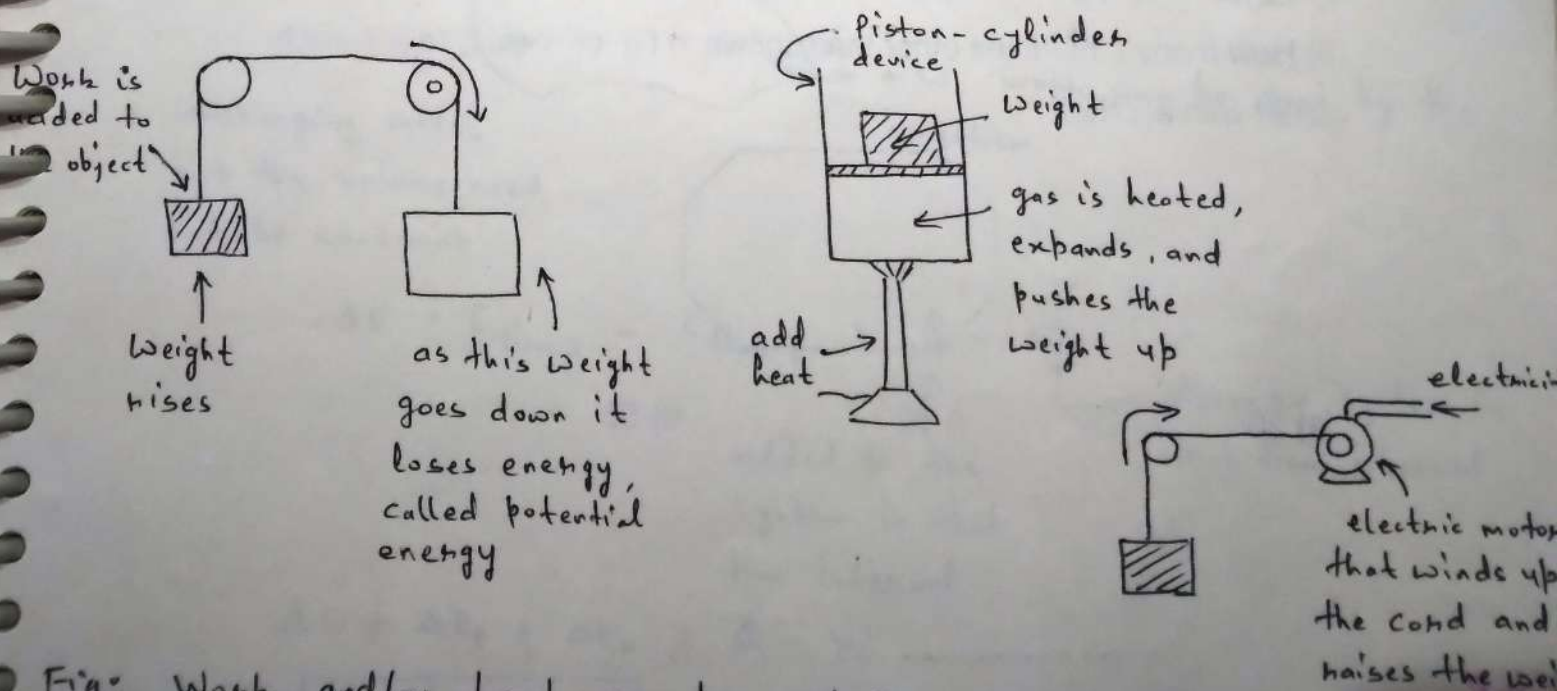 Work is
added to
object
weight
rises
as this weight
goes down it
loses energy,
called potential
energy
Piston-cylinder
device
weight
gas is heated,
expands, and
pushes the
weight up
add
heat
electrici
electric motor
that winds up
the cord and
raises the wei
Fig: Work and/